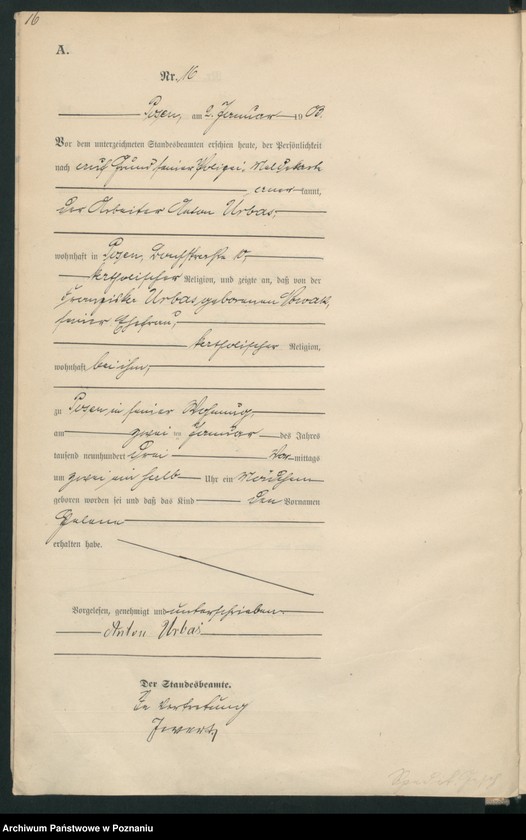 16
A.
Nr. 16
Posen, am 2. Januar 1903.
Vor dem unterzeichneten Standesbeamten erschien heute, der Persönlichkeit
nach auf Grund seiner Polizei-Meldekarte
anerkannt,
der Arbeiter Anton Urbas,
wohnhaft in Posen,
katholischer Religion, und zeigte an, daß von der
Franziska Urbas, geborenen Nowak,
seiner Ehefrau,
katholischer Religion,
wohnhaft bei ihm,
zu Posen, in seiner Wohnung,
am zwei ten Januar des Jahres
tausend neunhundert drei Vormittags
um zwei ein halb Uhr ein Mädchen
geboren worden sei und daß das Kind den Vornamen
Helene
erhalten habe.
Vorgelesen, genehmigt und unterschrieben.
Anton Urbas
Der Standesbeamte.
In Vertretung
Archiwum Państwowe w Poznaniu